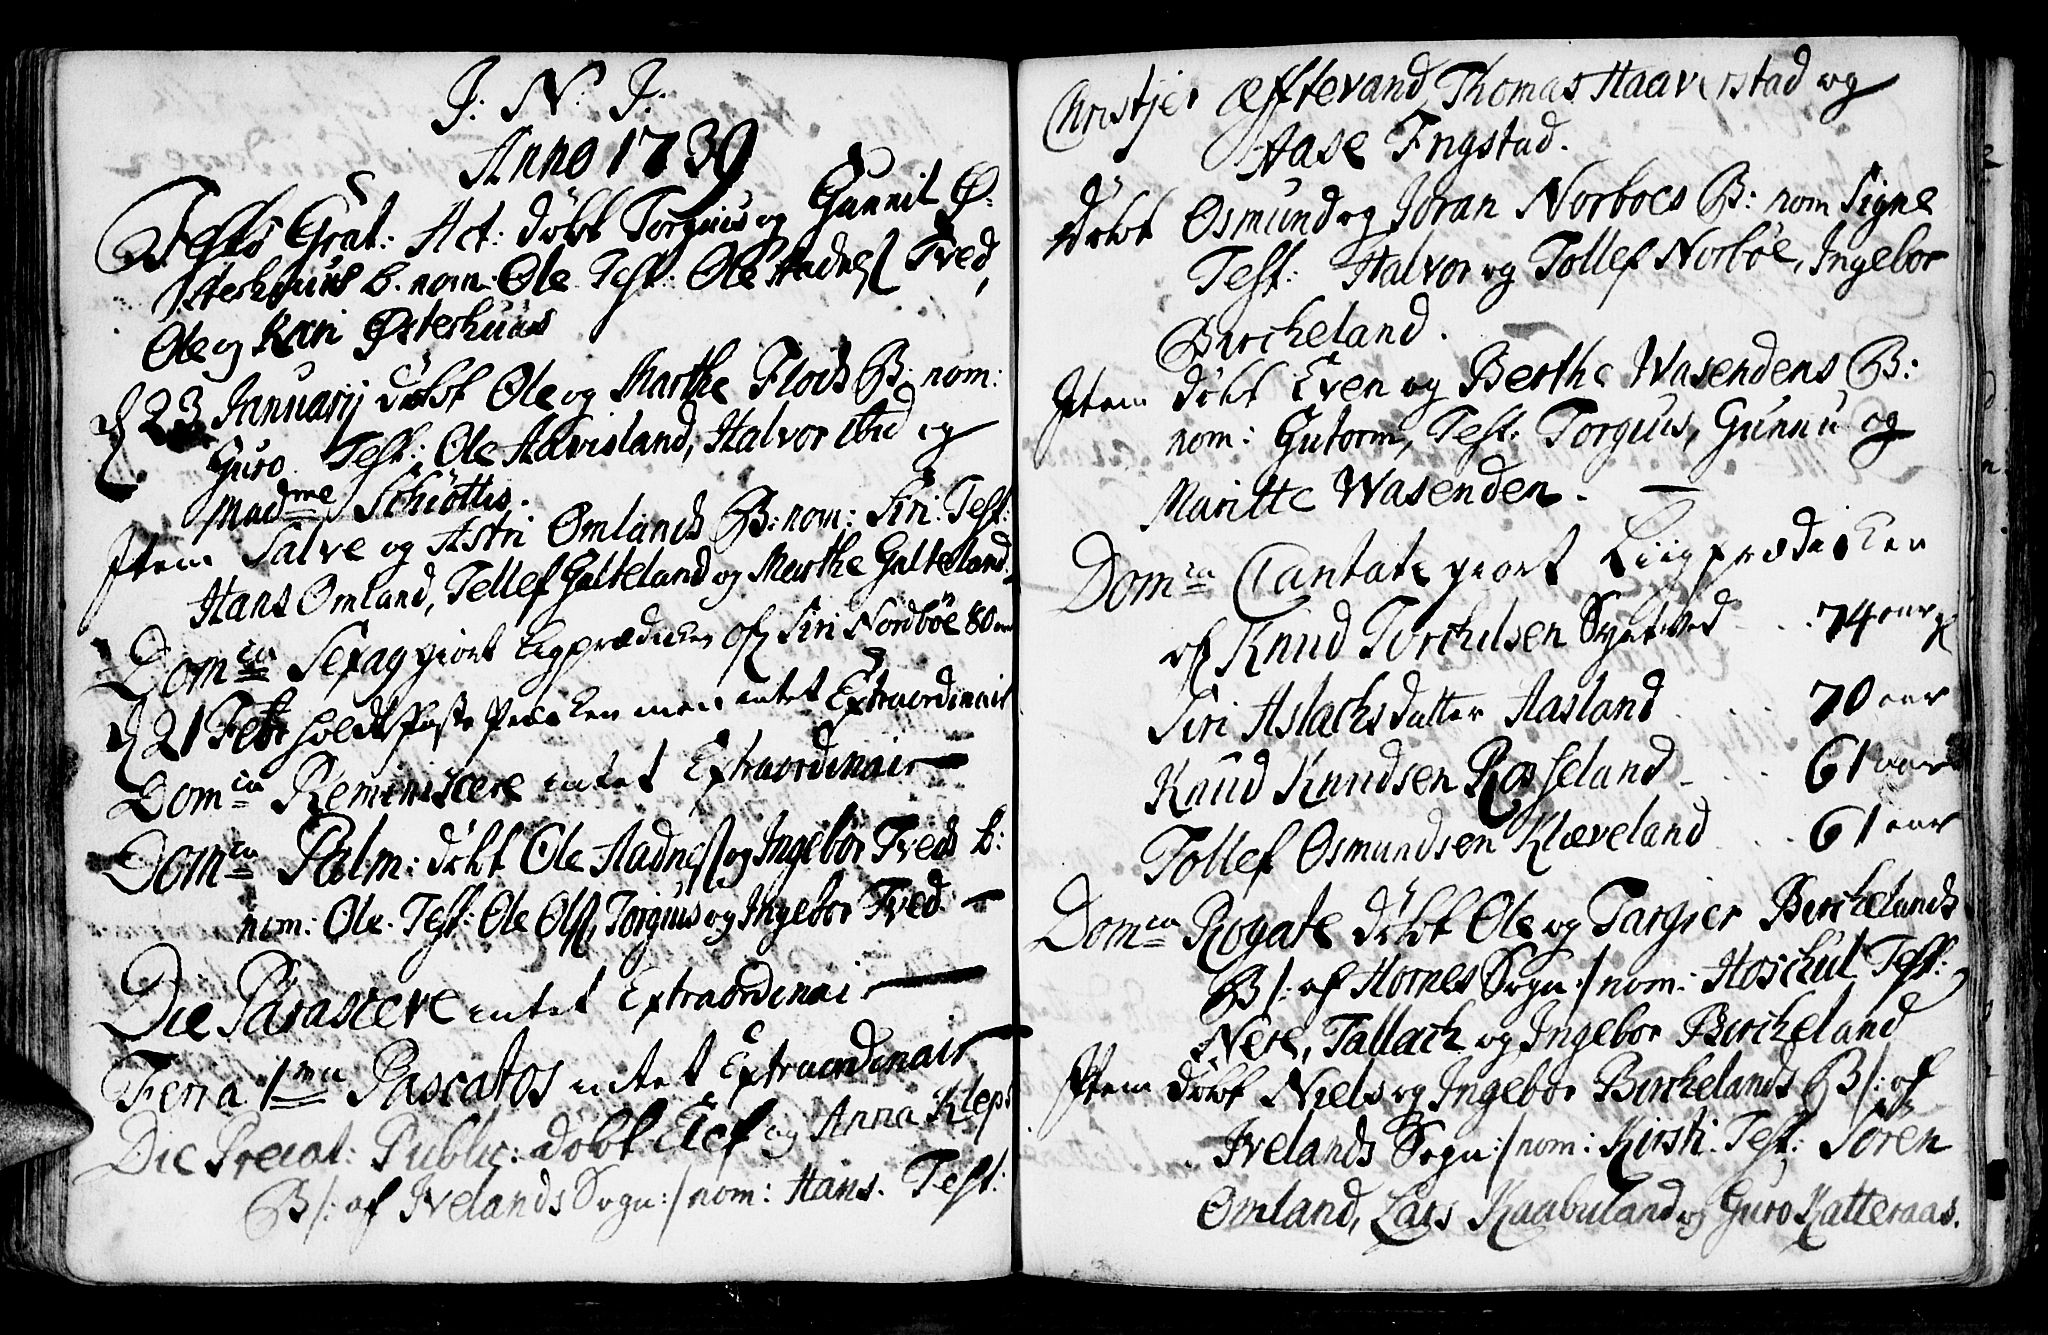 J: N: J:
Anno 1739
Festo Grat: Act: döbt Torguus og Gunnil Ø-
sterhuus b. nom: Ole Test: Ole Aadneſ Tved,
Ole og Kari Østerhuus
d 23 Januarij döbt Ole og Marthe Flods B: nom:
Guro. Test: Ole Haavisland, Halvor ibid og
Madme Schiöttis.
Item Salve og Astri Omlands B: nom: Siri: Test:
Hans Omland, Tellef Galteland og Marthe Galteland.
Domca Sexag giort Ligprædicken ofr Siri Nordböe 80 aar
d 21 Febr holdt Faste Præcken men intet Extraordinair
Domca Reminiscere intet Extraordinair
Domca Palm: döbt Ole Aadneſ og Ingebor Tveds b:
nom: Ole. Test: Ole Olſ, Torguus og Ingebor Tved
Die Parasceve intet Extraordinair
Feria 1ma Pascatos intet Extraordinair
Die Precat: Public: döbt Elef og Anna Kleps
B/: af Ivelands Sogn :/ nom: Hans. Test:
Christjer Æftevand, Thomas Haaverstad og
Aase Engstad.
döbt Osmund og Joran Norboes B: nom Signe
Test: Halvor og Tollef Norböe, Ingebor
Bircheland.
Item döbt Even og Berthe Wasendens B:
nom: Gutorm, Test: Torguus, Gunnu og
Maritte Wasenden.
Domca Cantate giort Liigprædicken
ofr Knud Torchelsen 74 aar
Siri Aslachsdatter Aasland 70 aar
Knud Knudsen Rosseland 61 aar
Tollef Osmundsen Klæveland 61 aar
Domca Rogate döbt Ole og Targier Birchelands
B/: af Hornes Sogn :/ nom: Hoschul Test:
Nere, Tallach og Ingebor Bircheland
Item döbt Niels og Ingebor Birchelands B/: af
Ivelands Sogn :/ nom: Kirsti. Test: Sören
Omland, Lars Kaabuland og Guro Katteraas.